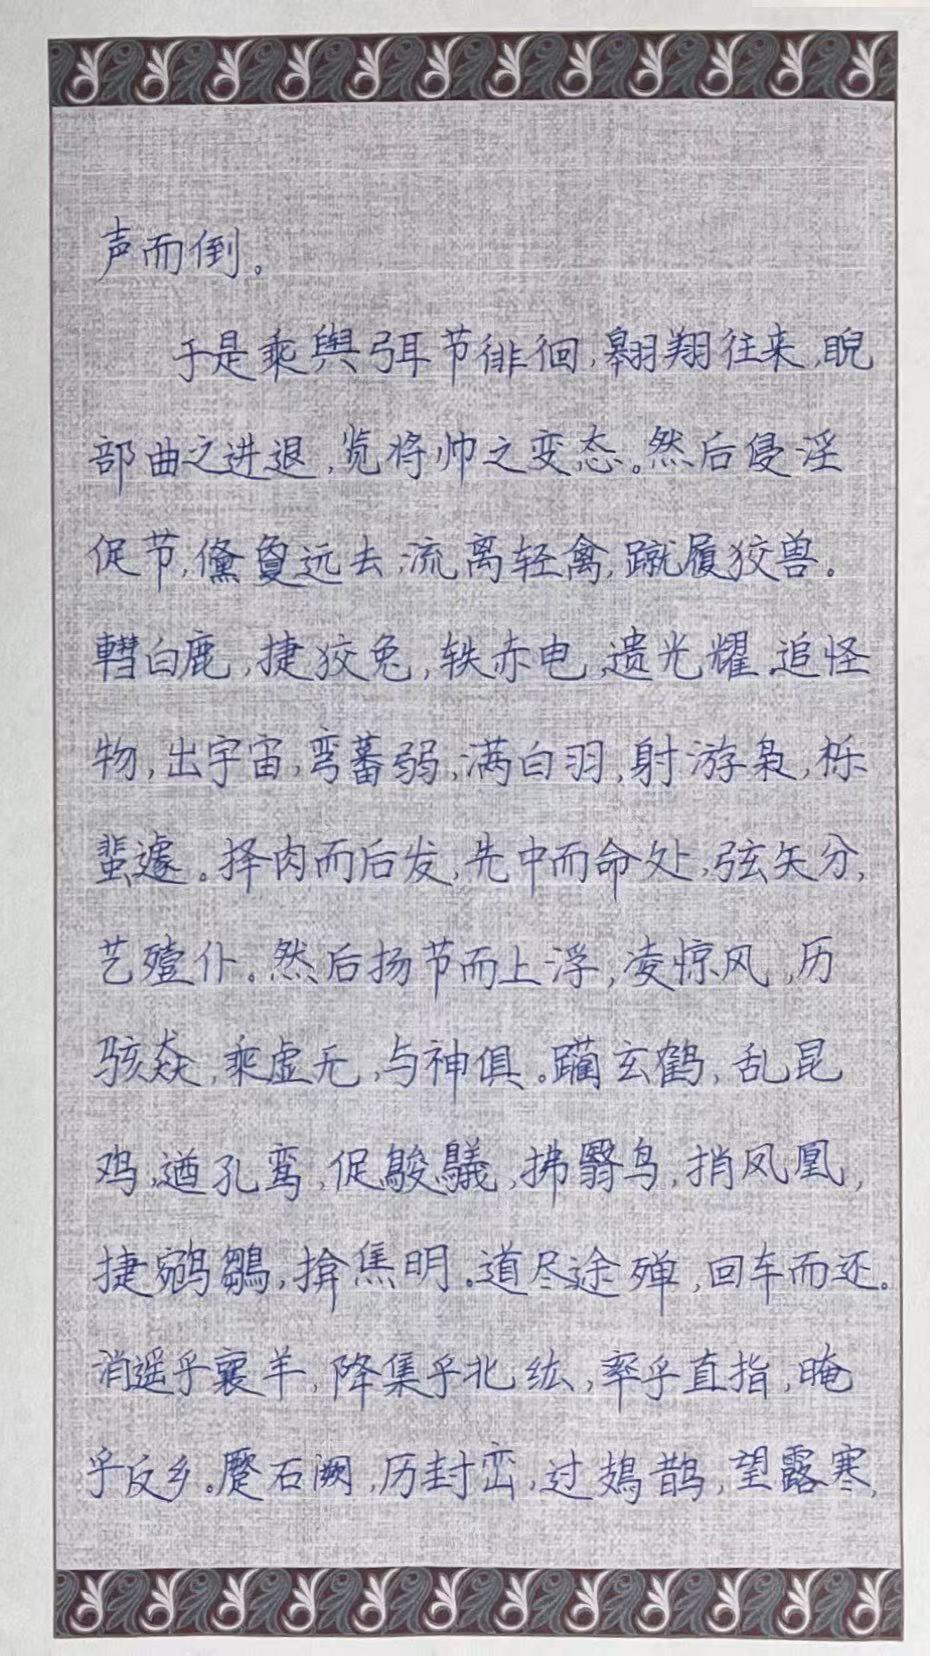 声而倒。
于是乘舆弭节徘徊,翱翔往来,睨
部曲之进退,览将帅之变态。然后侵淫
促节,儵夐远去,流离轻禽,蹴履狡兽。
轊白鹿,捷狡兔,轶赤电,遗光耀,追怪
物,出宇宙,弯蕃弱,满白羽,射游枭,栎
蜚遽。择肉而后发,先中而命处,弦矢分,
艺殪仆。然后扬节而上浮,凌惊风,历
骇猋,乘虚无,与神俱。躏玄鹤,乱昆
鸡,遒孔鸾,促鵔鸃,拂翳鸟,捎凤凰,
捷鹓鶵,揜焦明。道尽途殚,回车而还。
消遥乎襄羊,降集乎北纮,率乎直指,晻
乎反乡。蹷石阙,历封峦,过鳷鹊,望露寒,